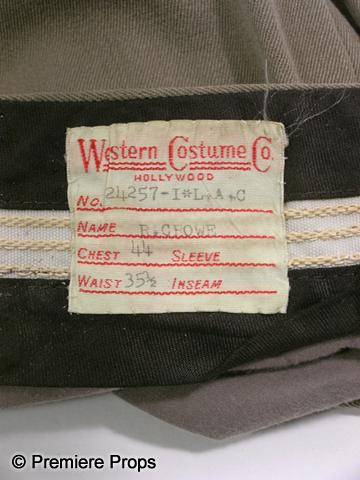 Western Costume Co.
HOLLYWOOD
No. 24257-I*L.A.C
NAME R.CROWE
CHEST 44 SLEEVE
WAIST 35½ INSEAM
© Premiere Props